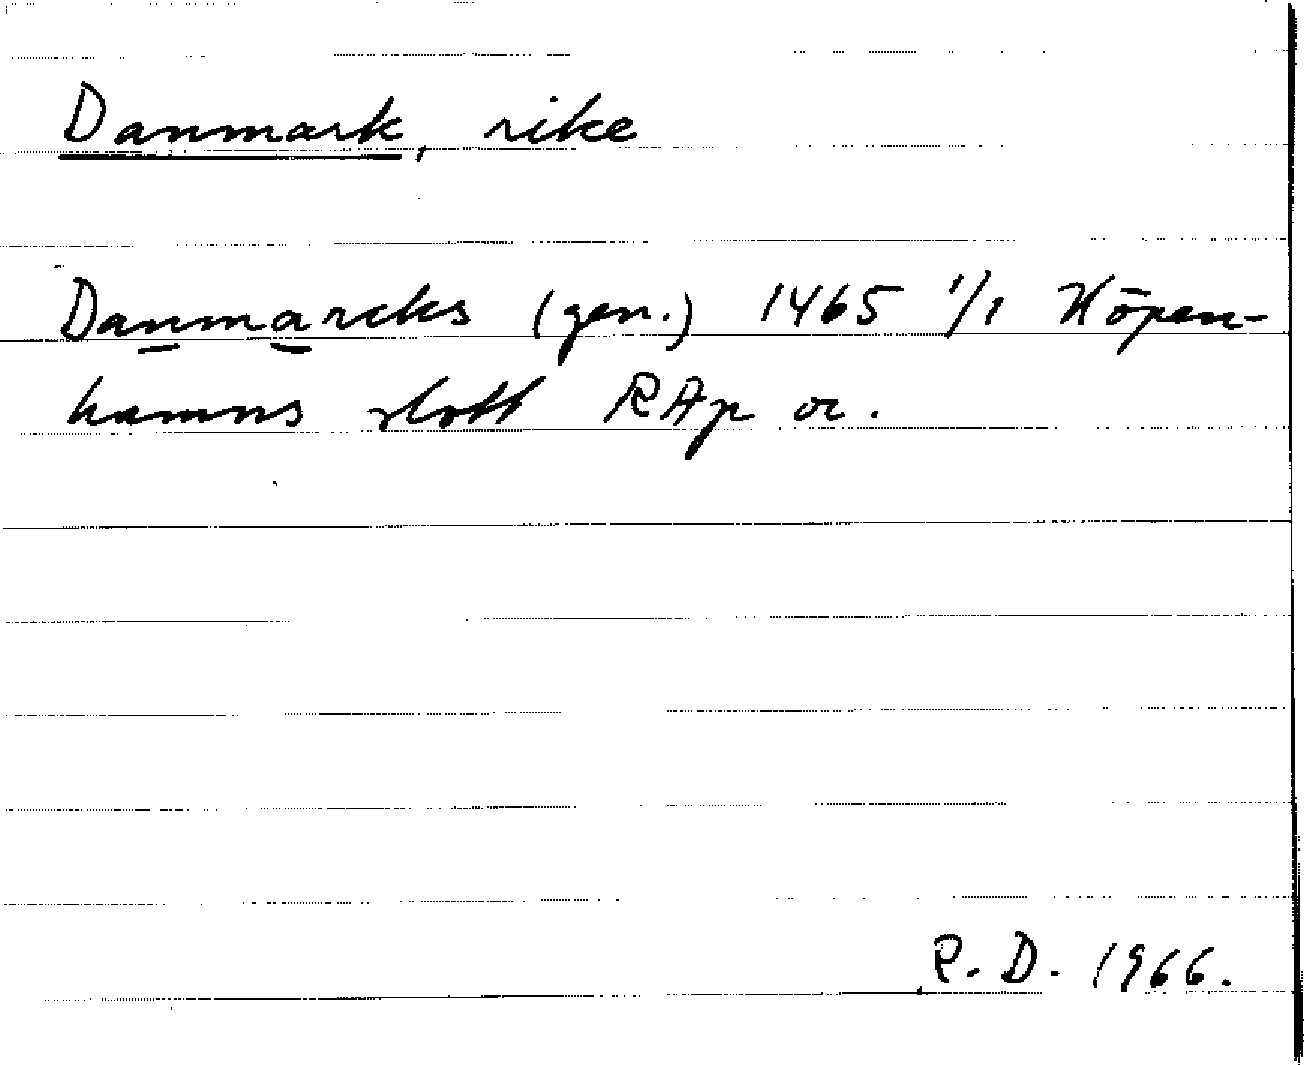 Danmark, rike
Danmarcks (gen.) 1465 1/1 Köpen-
hamns slott RAp or.
R. D. 1966.